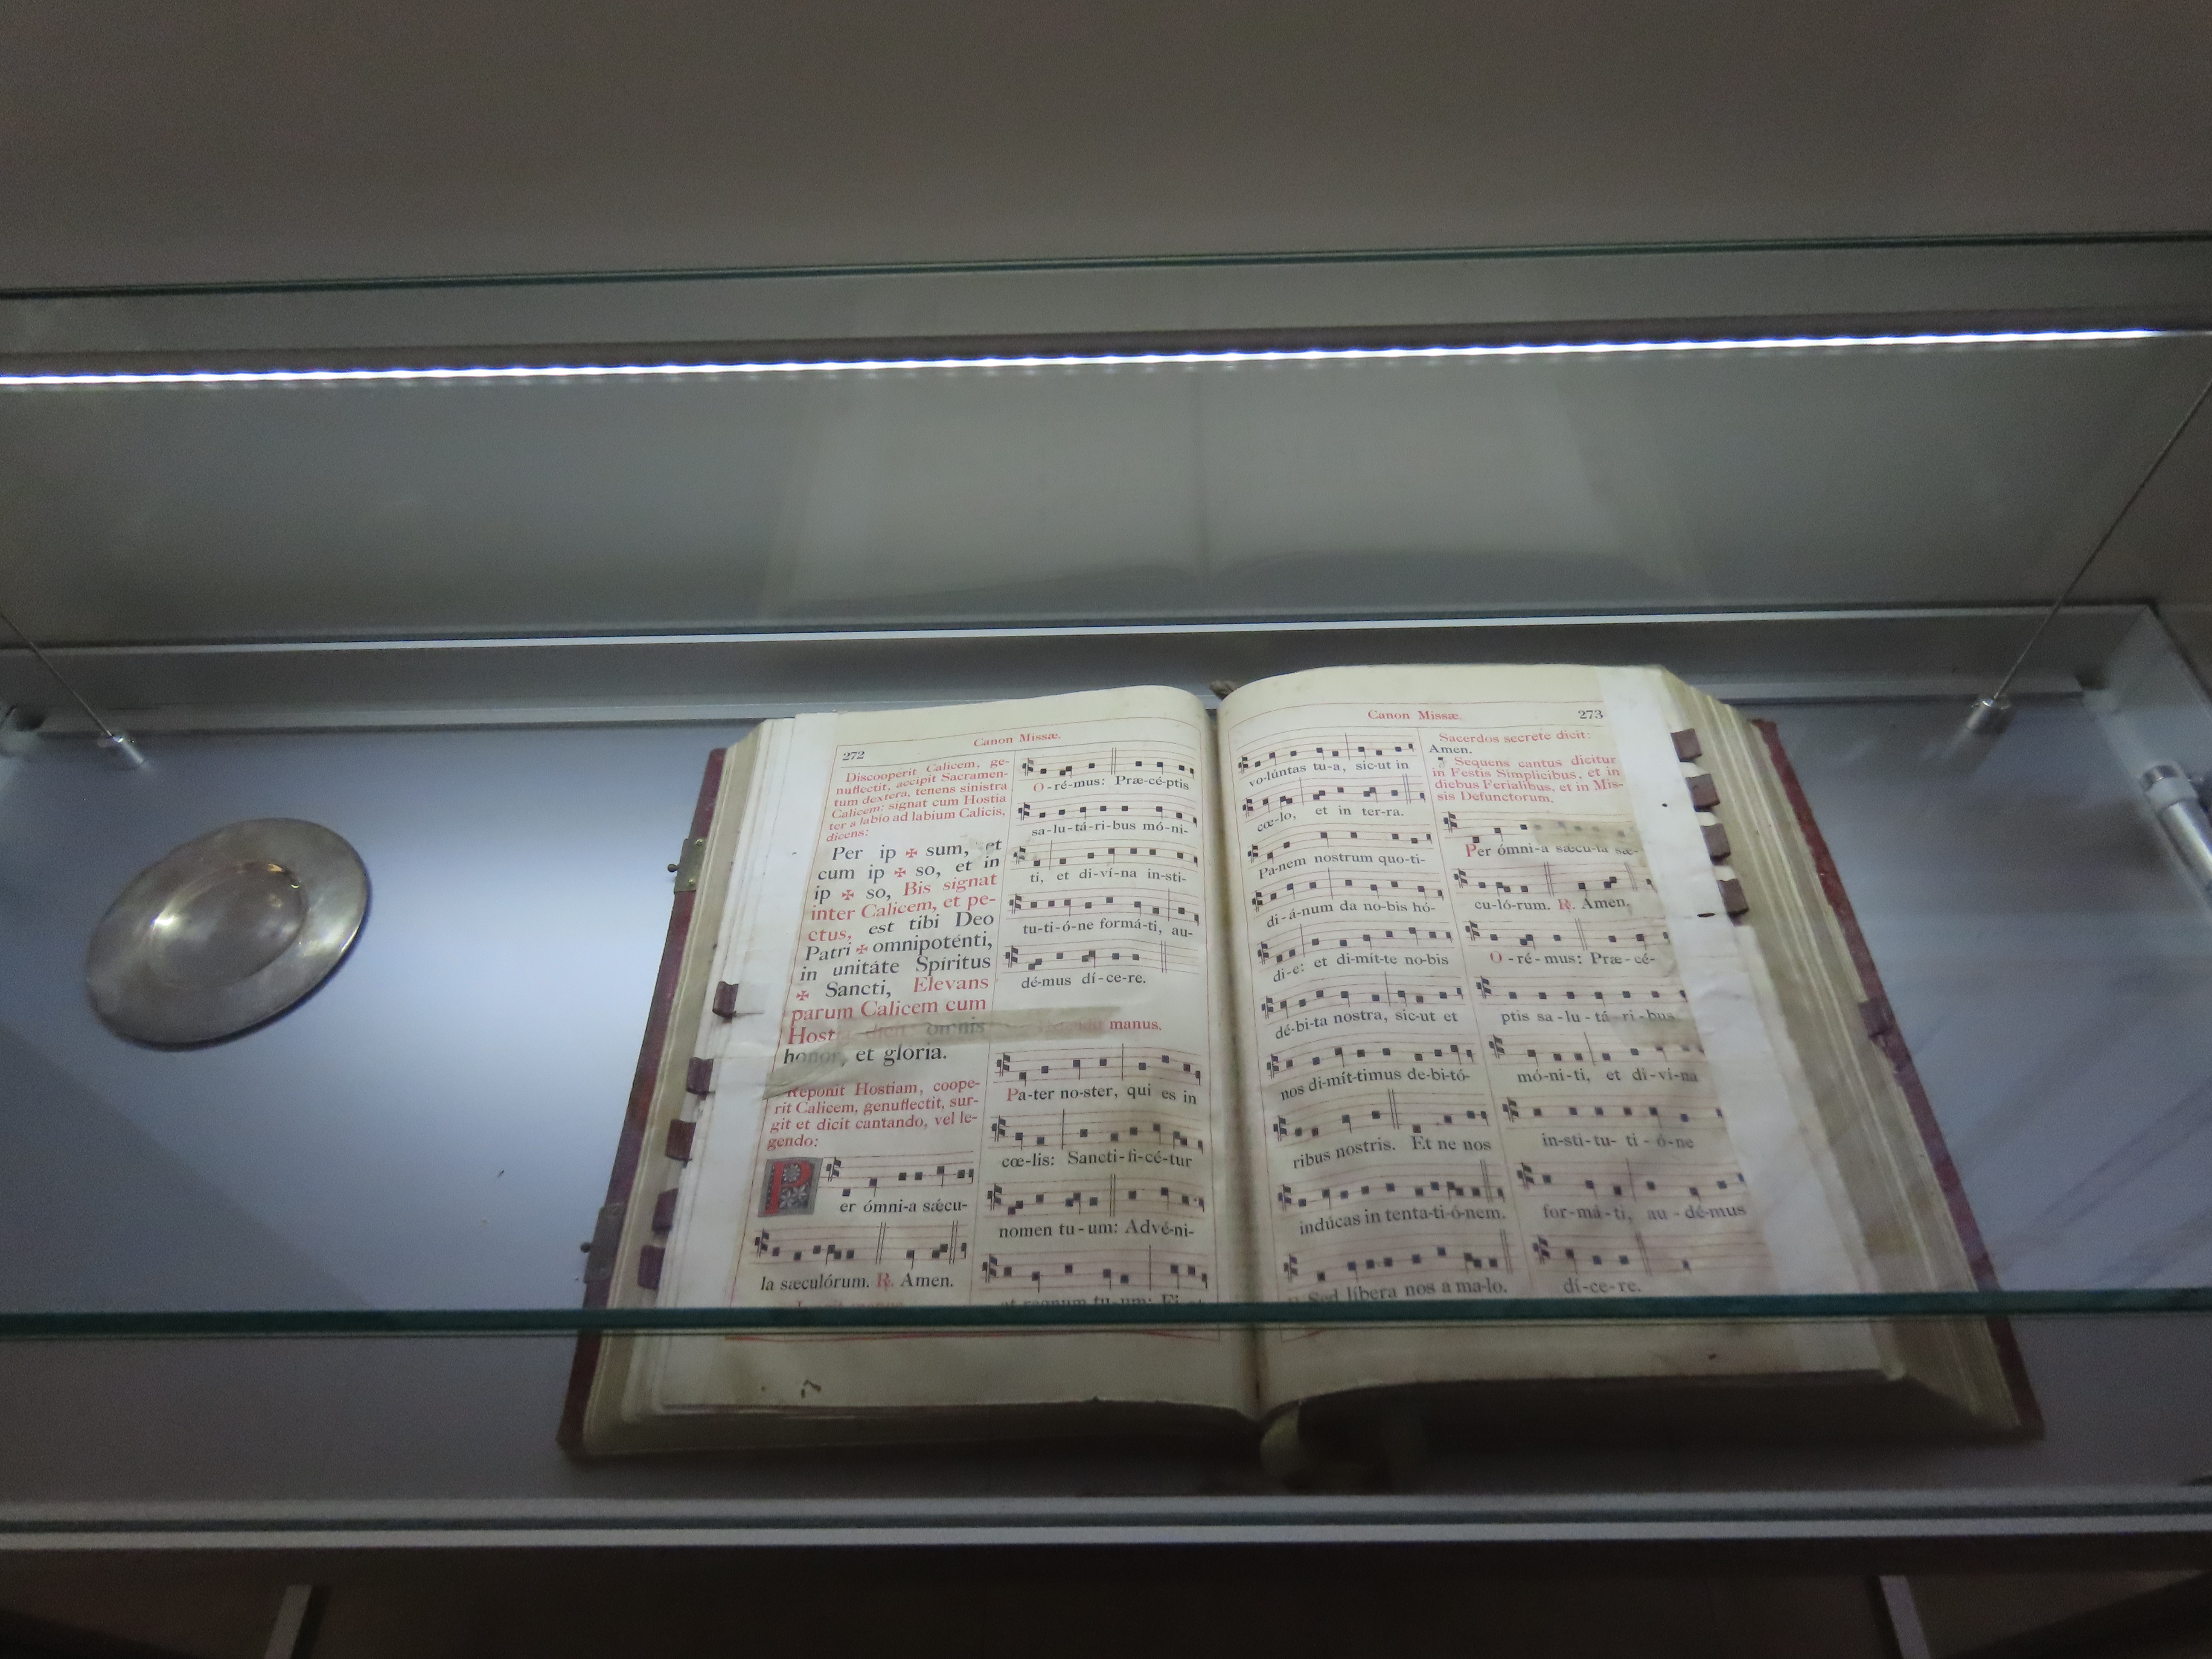 272
Canon Missæ.
Discooperit Calicem, ge-
nuflectit, accipit Sacramen-
tum dextera, tenens sinistra
Calicem: signat cum Hostia
ter a labio ad labium Calicis,
dicens:
Per ip ✠ sum, et
cum ip ✠ so, et in
ip ✠ so, Bis signat
inter Calicem, et pe-
ctus, est tibi Deo
Patri ✠ omnipoténti,
in unitáte Spíritus
✠ Sancti, Elevans
parum Calicem cum
Hostia, dicit: omnis
honor, et glória.
Reponit Hostiam, coope-
rit Calicem, genuflectit, sur-
git et dicit cantando, vel le-
gendo:
P
er ómni-a sǽcu-
la sæculórum. ℟. Amen.
O-ré-mus: Præ-cé-ptis
sa-lu-tá-ri-bus mó-ni-
ti, et di-ví-na in-sti-
tu-ti-ó-ne formá-ti, au-
dé-mus dí-ce-re.
manus.
Pa-ter no-ster, qui es in
cœ-lis: Sancti-fi-cé-tur
nomen tu-um: Advé-ni-
et regnum tu-um: Fi-at
Canon Missæ.
273
vo-lúntas tu-a, sic-ut in
cœ-lo, et in ter-ra.
Pa-nem nostrum quo-ti-
di-á-num da no-bis hó-
di-e: et di-mít-te no-bis
dé-bi-ta nostra, sic-ut et
nos di-mít-timus de-bi-tó-
ribus nostris. Et ne nos
indúcas in tenta-ti-ó-nem.
Sed líbera nos a ma-lo.
Sacerdos secrete dicit:
Amen.
Sequens cantus dicitur
in Festis Simplicibus, et in
diebus Ferialibus, et in Mis-
sis Defunctorum.
Per ómni-a sǽcu-la sæ-
cu-ló-rum. ℟. Amen.
O-ré-mus: Præ-cé-
ptis sa-lu-tá-ri-bus
mó-ni-ti, et di-ví-na
in-sti-tu-ti-ó-ne
for-má-ti, au-dé-mus
dí-ce-re.